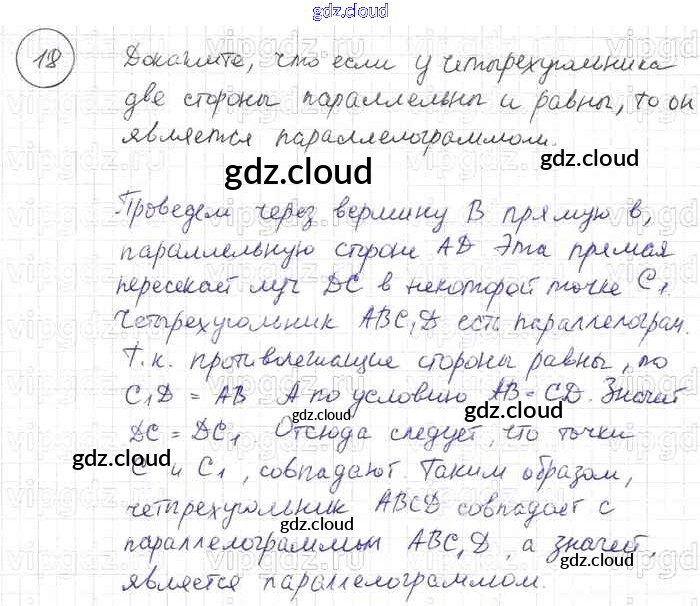 gdz.cloud
18 Докажите, что если у четырехугольника
две стороны параллельны и равны, то он
является параллелограммом.
gdz.cloud
gdz.cloud
Проведем через вершину В прямую в,
параллельную стороне AD Эта прямая
пересекает луч DC в некоторой точке C₁.
Четырехугольник ABC₁D есть параллелограм.
Т.к. противолежащие стороны равны, то
C₁D = AB А по условию AB = CD. Значит
gdz.cloud
gdz.cloud
DC = DC₁. Отсюда следует, что точки
gdz.cloud
C и C₁, совпадают. Таким образом,
четырехугольник ABCD совпадает с
gdz.cloud
параллелограммом ABC₁D, а значит,
является параллелограммом.
gdz.cloud